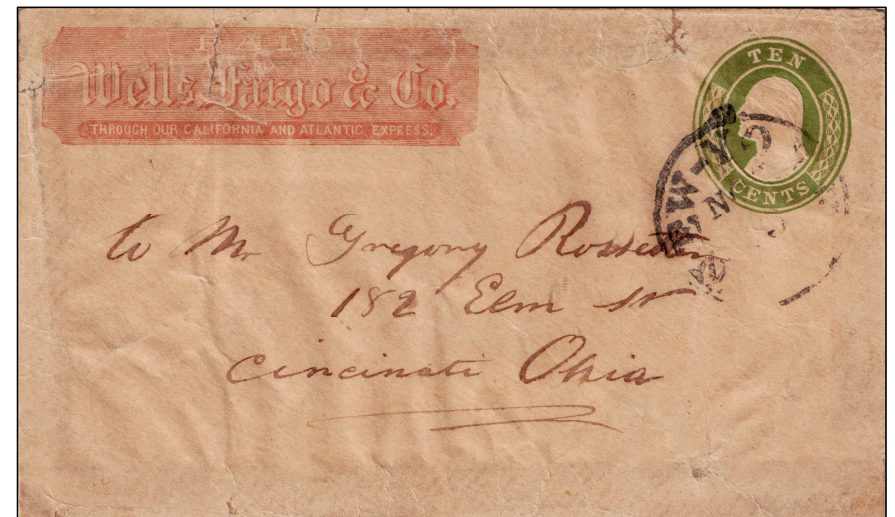 PAID
Wells, Fargo & Co.
THROUGH OUR CALIFORNIA AND ATLANTIC EXPRESS.
TEN
CENTS
NEW-YO
to Mr Gregory
182 Elm st
Cincinati Ohio